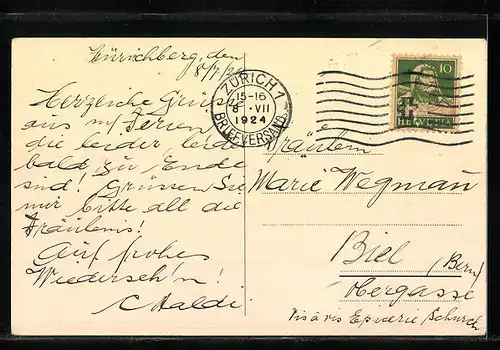 Zürichberg, den
8/7/24
Herzliche Grüsse
aus m/ Ferien,
die leider, leider
bald zu Ende
sind! Grüssen Sie
mir bitte all die
Fräuleins!
Auf frohes
Wiederseh'n!
C Haldi
ZÜRICH 1
15-16
8 · VII
1924
BRIEFVERSAND
10
HELVETIA
Fräulein
Marie Wegman
Biel (Bern)
Obergasse
vis à vis Epicerie Schurch